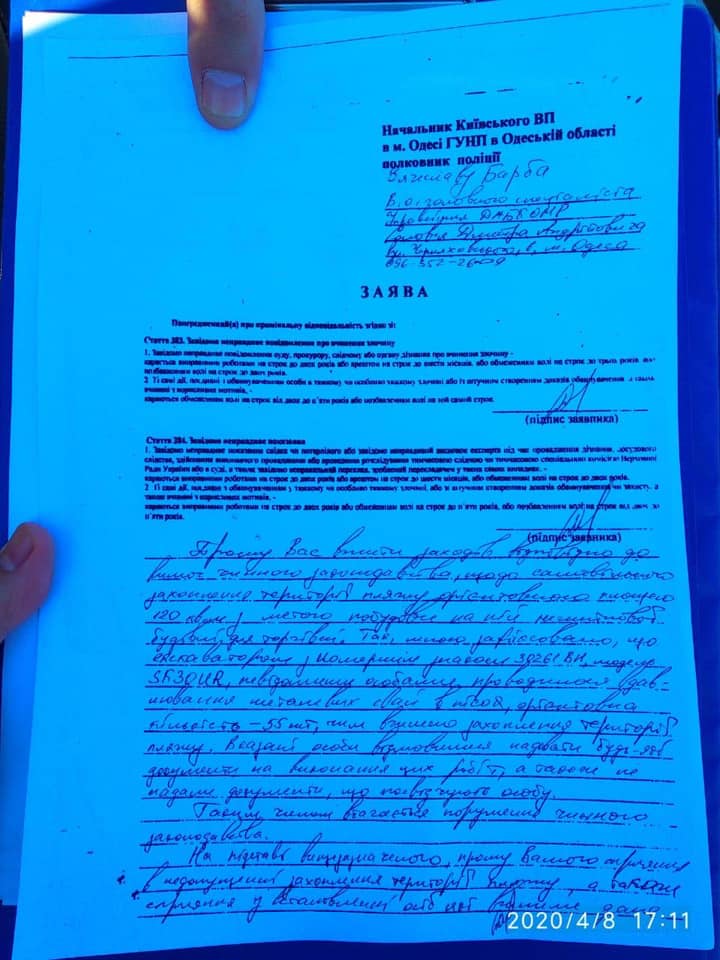 Начальник Київського ВП
в м. Одесі ГУНП в Одеській області
полковник поліції
Вячеславу Барба
В.о. головного спеціаліста
Управління
Дмитра Андрійовича
м. Одеса
ЗАЯВА
Попереджений(а) про кримінальну відповідальність згідно зі:
Стаття 383. Завідомо неправдиве повідомлення про вчинення злочину
1. Завідомо неправдиве повідомлення суду, прокурору, слідчому або органу дізнання про вчинення злочину -
карається виправними роботами на строк до двох років або арештом на строк до шести місяців, або обмеженням волі на строк до трьох років, або
позбавленням волі на строк до двох років.
2 Ті самі дії, поєднані з обвинуваченням особи в тяжкому чи особливо тяжкому злочині або із штучним створенням доказів обвинувачення, а також
вчинені з корисливих мотивів, -
караються обмеженням волі на строк від двох до п'яти років або позбавленням волі на той самий строк.
(підпис заявника)
Стаття 384. Завідомо неправдиве показання
1. Завідомо неправдиве показання свідка чи потерпілого або завідомо неправдивий висновок експерта під час провадження дізнання, досудового
слідства, здійснення виконавчого провадження або проведення розслідування тимчасовою слідчою чи тимчасовою спеціальною комісією Верховної
Ради України або в суді, а також завідомо неправильний переклад, зроблений перекладачем у таких самих випадках, -
караються виправними роботами на строк до двох років або арештом на строк до шести місяців, або обмеженням волі на строк до двох років.
2 Ті самі дії, поєднані з обвинуваченням у тяжкому чи особливо тяжкому злочині, або зі штучним створенням доказів обвинувачення чи захисту, а
також вчинені з корисливих мотивів, -
караються виправними роботами на строк до двох років або обмеженням волі на строк до п'яти років, або позбавленням волі на строк від двох до
п'яти років.
(підпис заявника)
Прошу Вас вжити заходів відповідно до
вимог чинного законодавства, щодо самовільного
захоплення території пляжу орієнтовною площею
120 кв.м з метою побудови на ній
будівлі для торгівлі. Так, мною зафіксовано, що
екскаватором з номерним знаком 30261 ВН, модель
невідомими особами, проводилося вдав-
лювання металевих свай в пісок, орієнтовна
кількість - 55 шт, чим вчинено захоплення території
пляжу. Вказані особи відмовилися надавати будь-які
документи на виконання цих робіт, а також не
надали документи, що посвідчують особу.
Таким чином вбачається порушення чинного
законодавства.
На підставі вищезазначеного, прошу Вашого сприяння
в недопущенні захоплення території пляжу, а також
сприяння у встановленні осіб які вчинили дана
2020/4/8 17:11